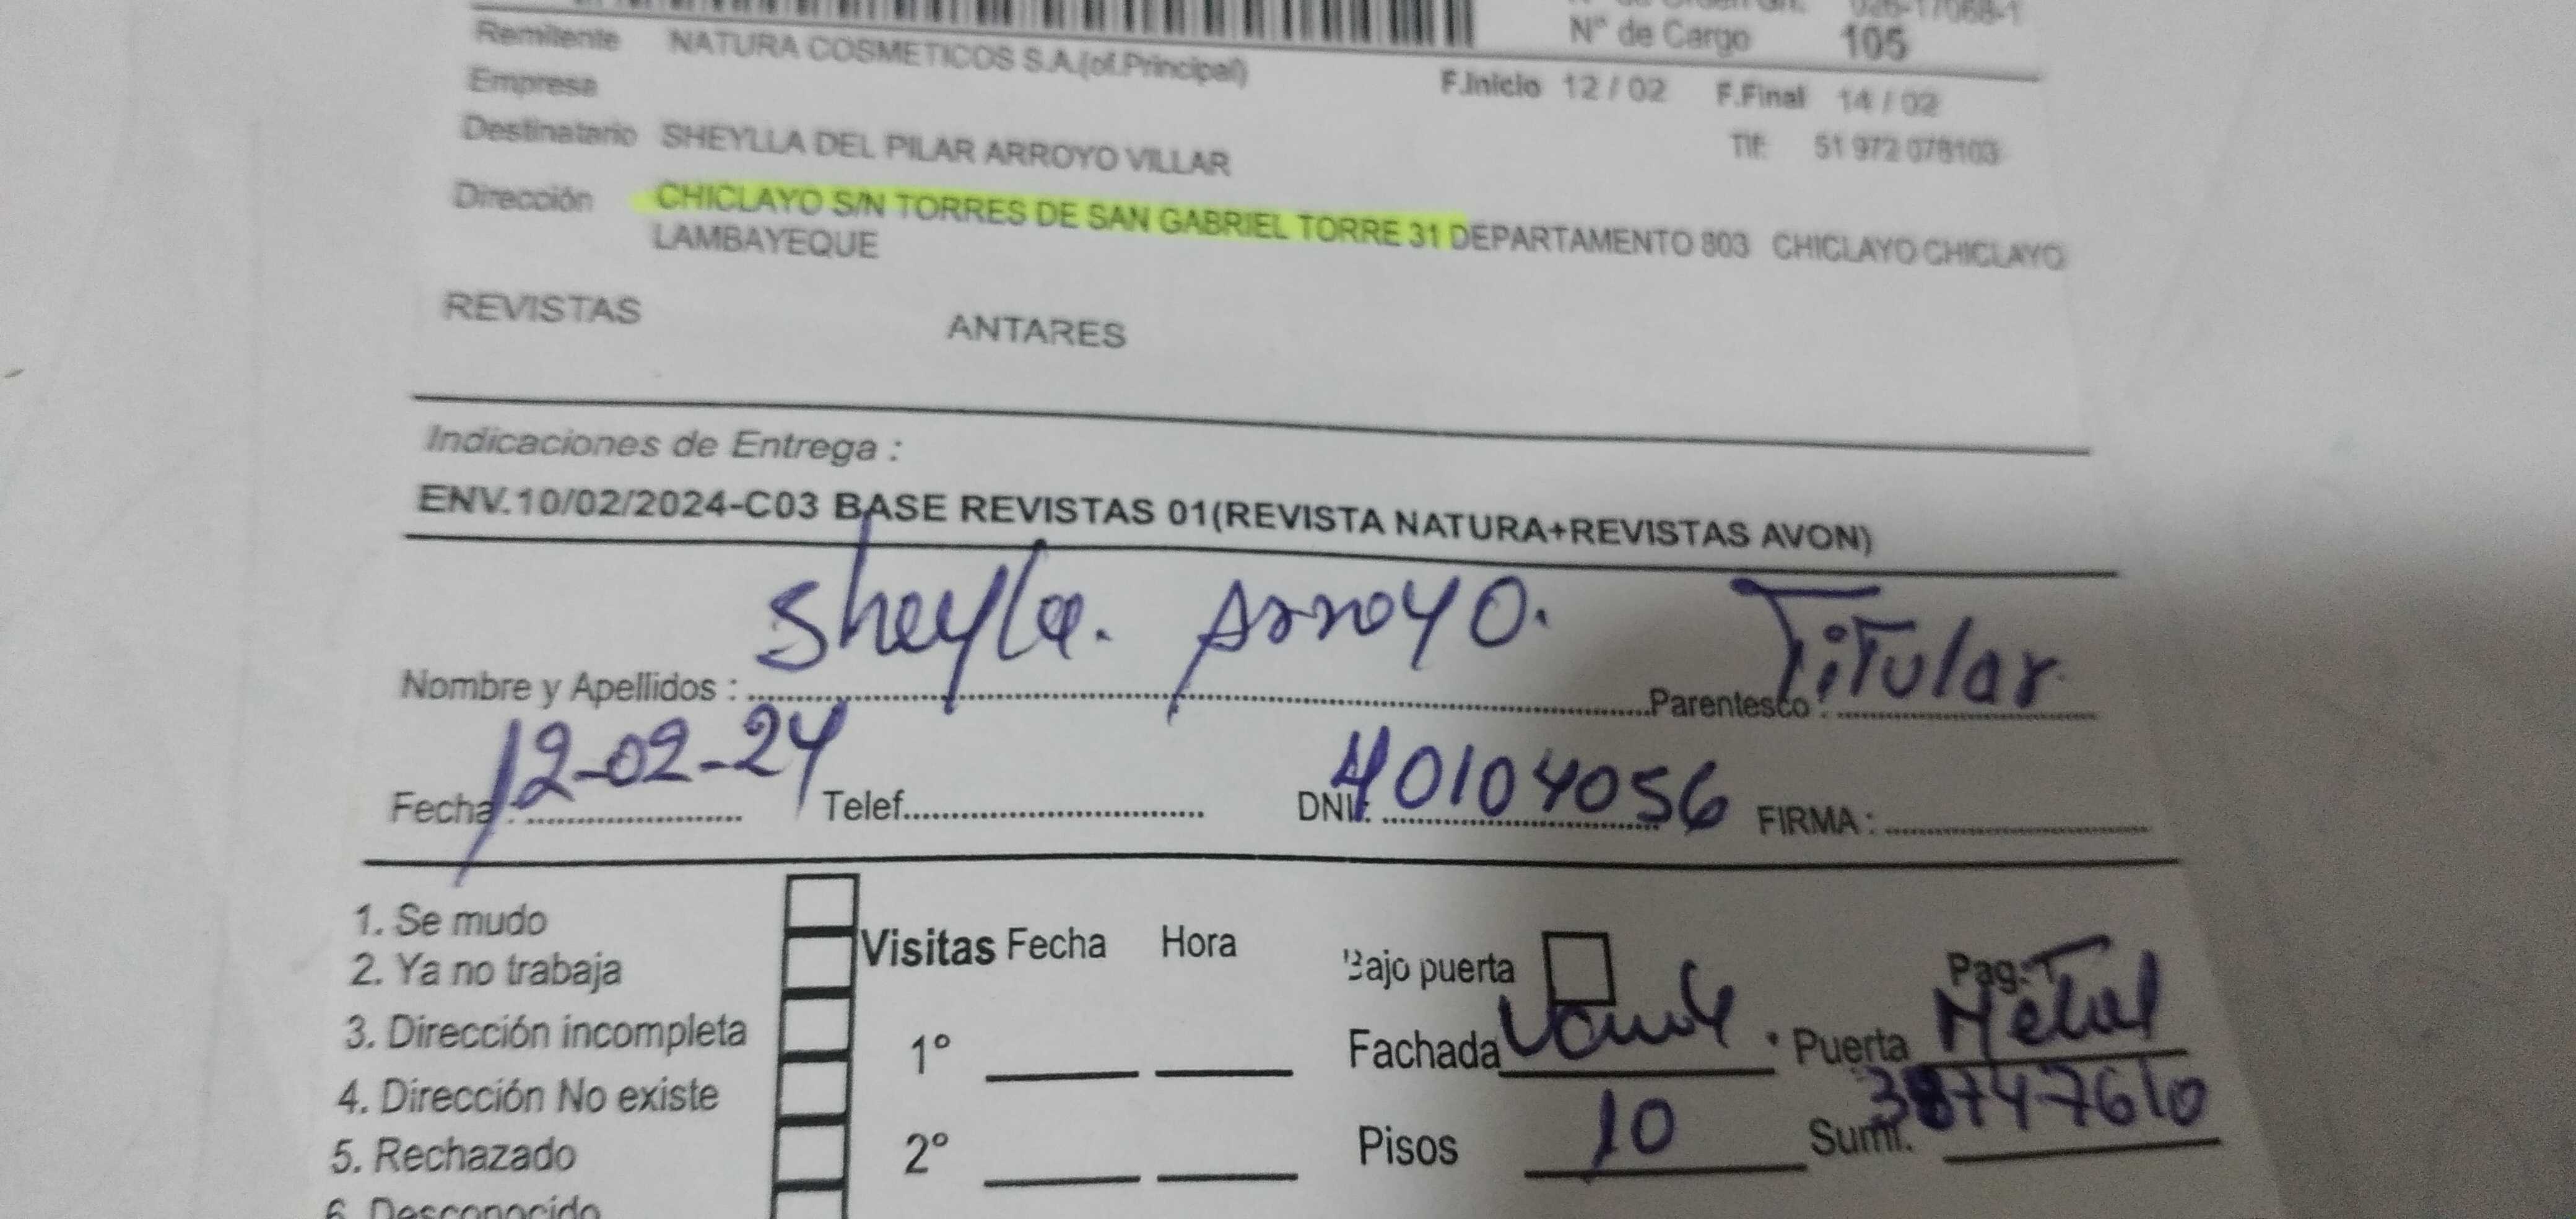 Nº de Cargo 105
Remitente NATURA COSMETICOS S.A.(of.Principal)
Empresa F.Inicio 12 / 02 F.Final 14 / 02
Destinatario SHEYLLA DEL PILAR ARROYO VILLAR Tlf: 51 972 078103
Dirección CHICLAYO S/N TORRES DE SAN GABRIEL TORRE 31 DEPARTAMENTO 803 CHICLAYO CHICLAYO
LAMBAYEQUE
REVISTAS ANTARES
Indicaciones de Entrega :
ENV.10/02/2024-C03 BASE REVISTAS 01(REVISTA NATURA+REVISTAS AVON)
Nombre y Apellidos : Sheyla. Arroyo. Parentesco : Titular
Fecha : 12-02-24 Telef. DNI: 40104056 FIRMA :
1. Se mudo
2. Ya no trabaja
3. Dirección incompleta
4. Dirección No existe
5. Rechazado
6. Desconocido
Visitas Fecha Hora
1º
2º
Bajo puerta Pag.
Fachada Puerta Metal
Pisos 10 Sumi.